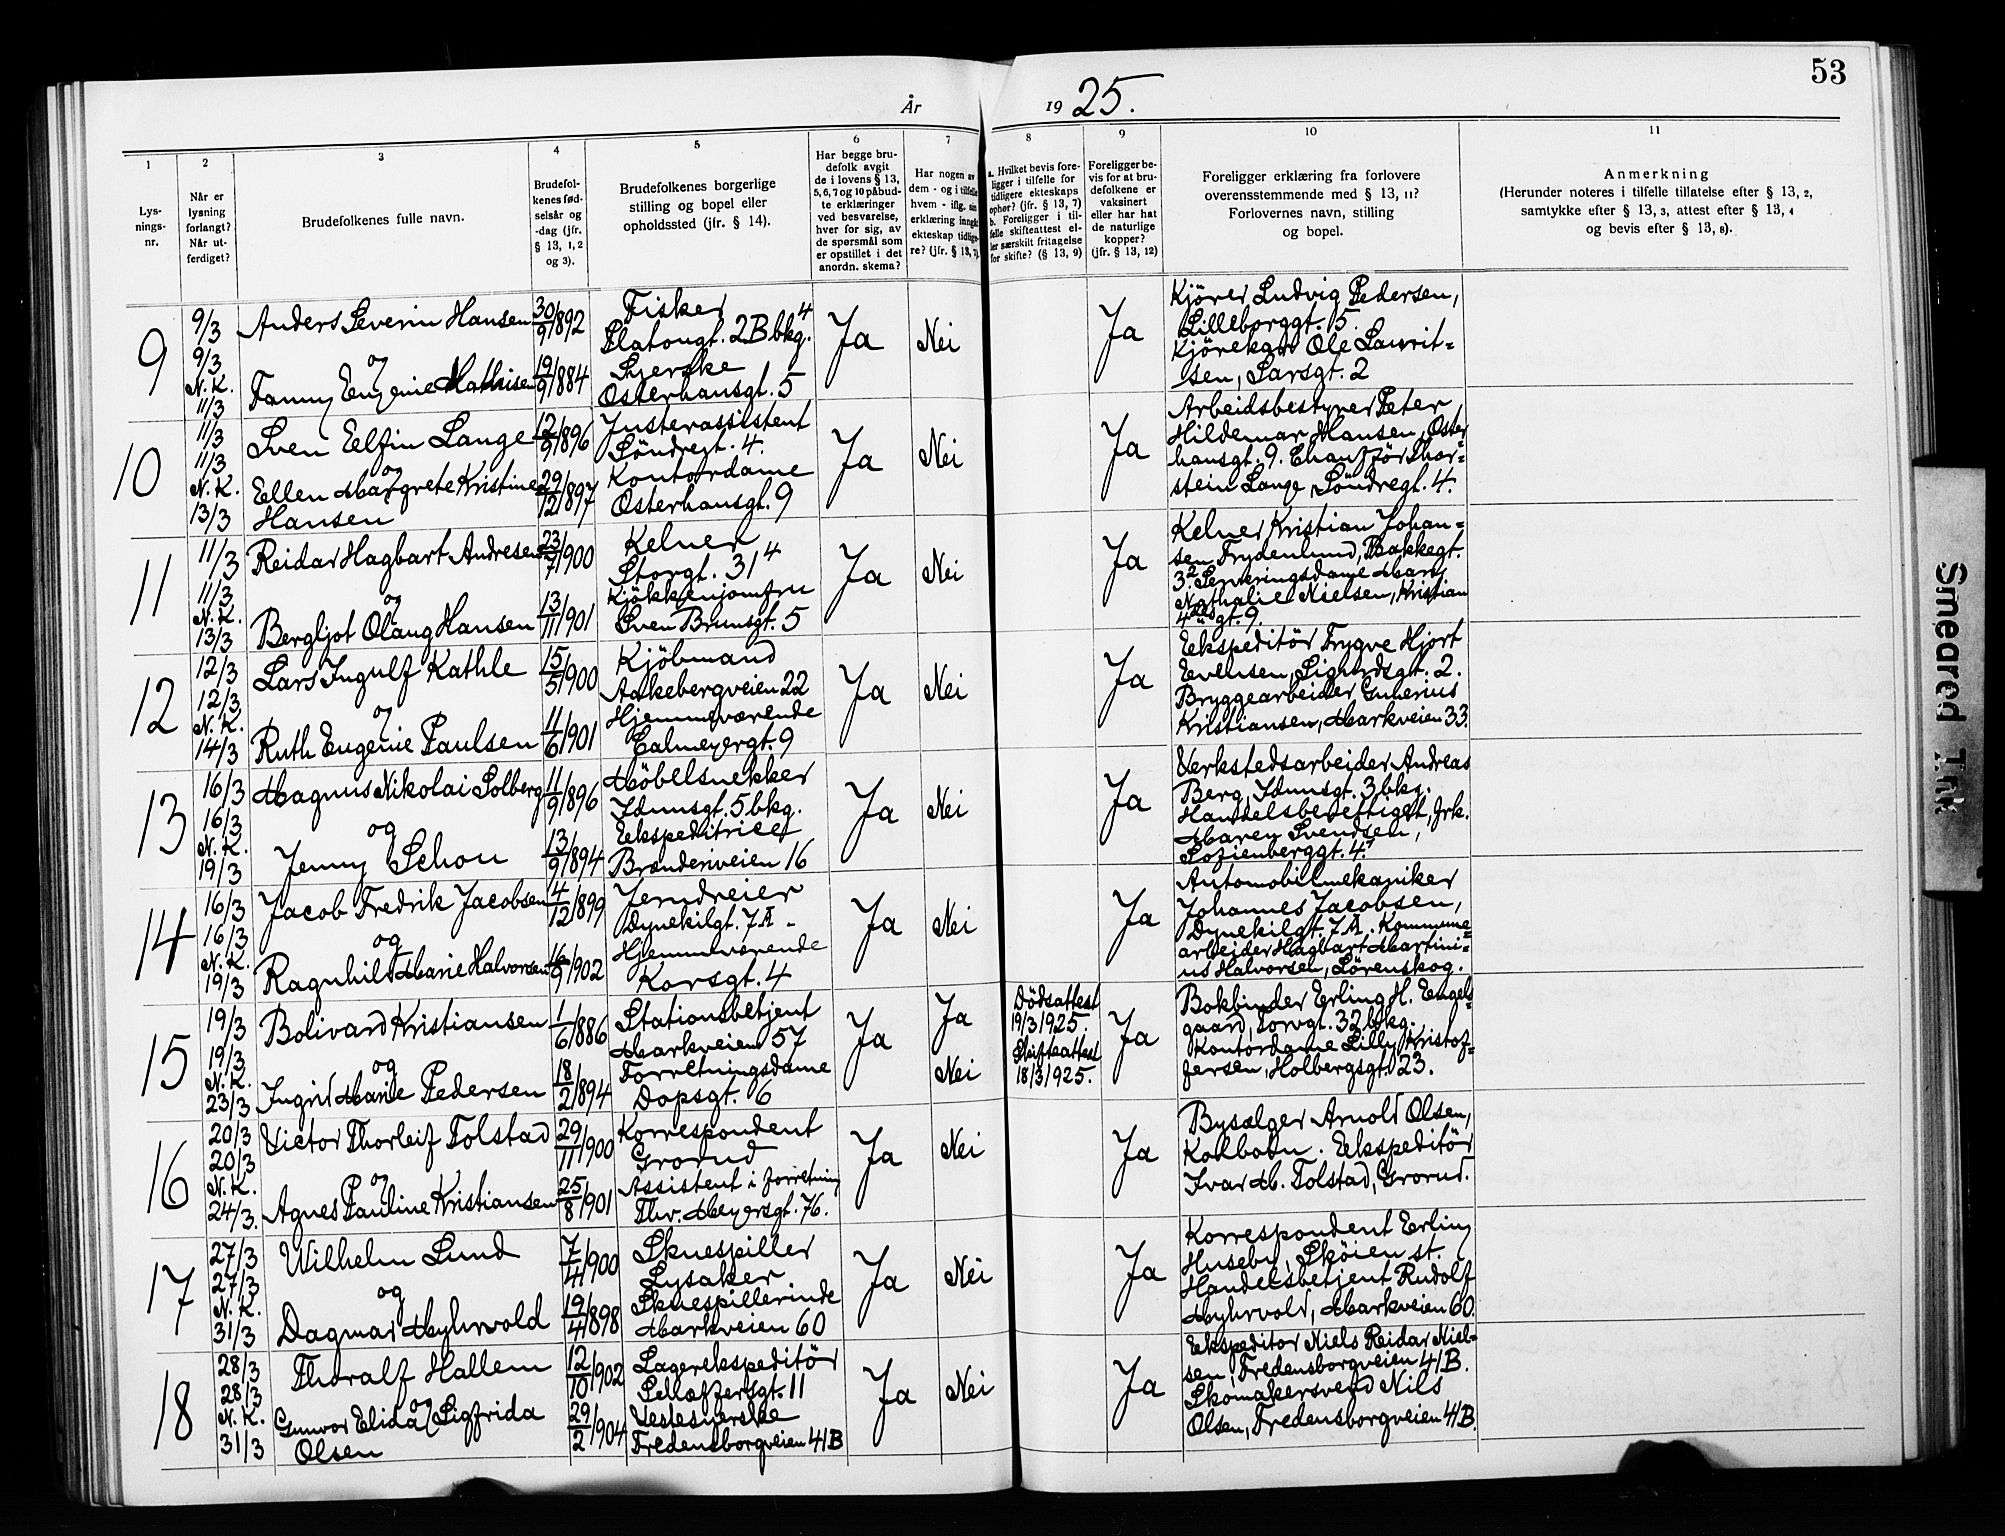 53
År 1925.
1
2
3
4
5
6
7
8
9
10
11
Lys-
nings-
nr.
Når er
lysning
forlangt?
Når ut-
ferdiget?
Brudefolkenes fulle navn.
Brudefol-
kenes fød-
selsår og
-dag (jfr.
§ 13, 1, 2
og 3).
Brudefolkenes borgerlige
stilling og bopel eller
opholdssted (jfr. § 14).
Har begge bru-
defolk avgit
de i lovens § 13,
5, 6, 7 og 10 påbud-
te erklæringer
ved besvarelse,
hver for sig, av
de spørsmål som
er opstillet i det
anordn. skema?
Har nogen av
dem - og i tilfelle
hvem - iflg. sin
erklæring inngått
ekteskap tidlige-
re? (jfr. § 13, 7)
a. Hvilket bevis fore-
ligger i tilfelle for
tidligere ekteskaps
ophør? (jfr. § 13, 7)
b. Foreligger i til-
felle skifteattest el-
ler særskilt fritagelse
for skifte? (§ 13, 9)
Foreligger be-
vis for at bru-
defolkene er
vaksinert
eller har hat
de naturlige
kopper?
(jfr. § 13, 12)
Foreligger erklæring fra forlovere
overensstemmende med § 13, 11?
Forlovernes navn, stilling
og bopel.
Anmerkning
(Herunder noteres i tilfelle tillatelse efter § 13, 2,
samtykke efter § 13, 3, attest efter § 13, 4
og bevis efter § 13, 8).
9
9/3
9/3
N. K.
11/3
Anders Severin Hansen
og
Fanny Eugenie Mathisen
30/9 1892
19/9 1884
Fisker
Platougt. 2B bkg. 4
Syerske
Osterhausgt. 5
Ja
Nei
Ja
Kjører Ludvig Pedersen,
Lilleborggt. 5.
Kjørekar Ole Laurit-
sen, Larsgt. 2
10
11/3
11/3
N. K.
13/3
Sven Elfin Lange
og
Ellen Margrete Kristine
Hansen
12/9 1896
29/12 1897
Justerassistent
Søndregt. 4.
Kontordame
Osterhausgt. 9
Ja
Nei
Ja
Arbeidsbestyrer Peter
Hildemar Hansen, Oster-
hausgt. 9. Chauffør Thor-
stein Lange, Søndregt. 4.
11
11/3
11/3
N. K.
13/3
Reidar Hagbart Andresen
og
Bergljot Olaug Hansen
23/7 1900
13/11 1901
Kelner
Storgt. 31 4
Kjøkkenjomfru
Sven Brunsgt. 5
Ja
Nei
Ja
Kelner Kristian Johan-
sen Frydenlund, Bakkegt.
3 2. Serveringsdame Mary
Nathalie Nielsen, Kristian
4des gt. 9.
12
12/3
12/3
N. K.
14/3
Lars Ingulf Kathle
og
Ruth Eugenie Paulsen
15/5 1900
11/6 1901
Kjøbmand
Aakebergveien 22
Hjemmeværende
Calmeyergt. 9
Ja
Nei
Ja
Ekspeditør Trygve Hjort
Evensen, Sigurdsgt. 2.
Bryggearbeider Gunerius
Kristiansen, Markveien 33.
13
16/3
16/3
N. K.
19/3
Magnus Nikolai Solberg
og
Jenny Schou
11/9 1896
13/9 1894
Møbelsnekker
Idunsgt. 5 bkg.
Ekspeditrice
Brænderiveien 16
Ja
Nei
Ja
Verkstedsarbeider Andreas
Berg, Idunsgt. 3 bkg.
Handelsbereftiget, frk.
Maren Svendsen,
Sofienberggt. 4.
14
16/3
16/3
N. K.
19/3
Jacob Fredrik Jacobsen
og
Ragnhild Marie Halvorsen
4/12 1899
1902
Jerndreier
Dynekilgt. 7A -
Hjemmeværende
Korsgt. 4
Ja
Nei
Ja
Automobilmekaniker
Johannes Jacobsen,
Dynekilgt. 7A. Kommune-
arbeider Hagbart Martini-
us Halvorsen, Lørenskog.
15
19/3
19/3
N. K.
23/3
Bolivard Kristiansen
og
Ingrid Marie Pedersen
1/6 1886
18/2 1894
Stationsbetjent
Markveien 57
Forretningsdame
Dopsgt. 6
Ja
Ja
Nei
Dødsattest
19/3 1925.
Skifteattest
18/3 1925.
Ja
Bokbinder Erling H. Engels-
gaard, Torvgt. 32 bkg.
Kontordame Lilly Kristof-
fersen, Holbergsgt. 23.
16
20/3
20/3
N. K.
24/3.
Victor Thorleif Tolstad
og
Agnes Pauline Kristiansen
29/11 1900
25/8 1901
Korrespondent
Grorud
Assistent i forretning
Thv. Meyersgt. 76.
Ja
Nei
Ja
Bysælger Arnold Olsen,
Kolbotn. Ekspeditør
Ivar M. Tolstad, Grorud.
17
27/3
27/3
N. K.
31/3
Wilhelm Lund
og
Dagmar Myhrvold
7/4 1900
19/4 1898
Skuespiller
Lysaker
Skuespillerinde
Markveien 60
Ja
Nei
Ja
Korrespondent Erling
Huseby, Skøien st.
Handelsbetjent Rudolf
Myhrvold, Markveien 60.
18
28/3
28/3
N. K.
31/3
Thoralf Hallem
og
Gunvor Elida Sigfrida
Olsen
12/10 1902
29/2 1904
Lagerekspeditør
Schæffersgt. 11
Vestesyerske
Fredensborgveien 41B
Ja
Nei
Ja
Ekspeditør Niels Reidar Niel-
sen, Fredensborgveien 41B.
Skomakersvend Nils
Olsen, Fredensborgveien 41B.
Smeared Ink